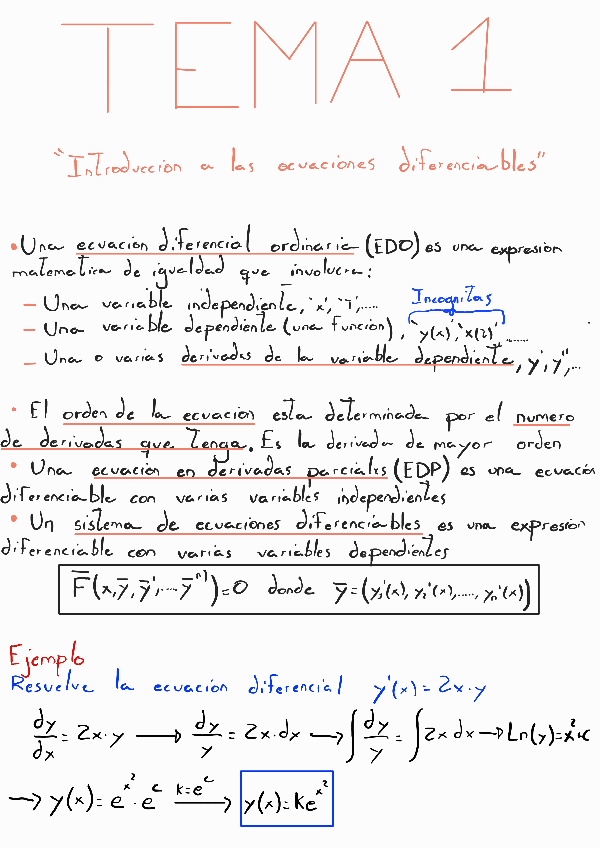 TEMA 1
"Introduccion a las ecuaciones diferenciables"
• Una ecuacion diferencial ordinaria (EDO) es una expresion
matematica de igualdad que involucra:
– Una variable independiente, 'x', 'T',....
Incognitas
– Una variable dependiente (una funcion), 'y(x)', 'x(2)', ......
– Una o varias derivadas de la variable dependiente, y', y'',...
• El orden de la ecuacion esta determinada por el numero
de derivadas que tenga. Es la derivada de mayor orden
• Una ecuacion en derivadas parciales (EDP) es una ecuacion
diferenciable con varias variables independientes
• Un sistema de ecuaciones diferenciables es una expresion
diferenciable con varias variables dependientes
F̅(x, y̅, y̅', .... y̅ⁿ⁾) = 0 donde y̅ = (y₁'(x), y₂'(x), ....., yₙ'(x))
Ejemplo
Resuelve la ecuacion diferencial y'(x) = 2x·y
dy/dx = 2x·y → dy/y = 2x·dx → ∫ dy/y = ∫ 2x dx → Ln(y) = x² + c
→ y(x) = e^x² · e^c k = e^c → y(x) = ke^x²